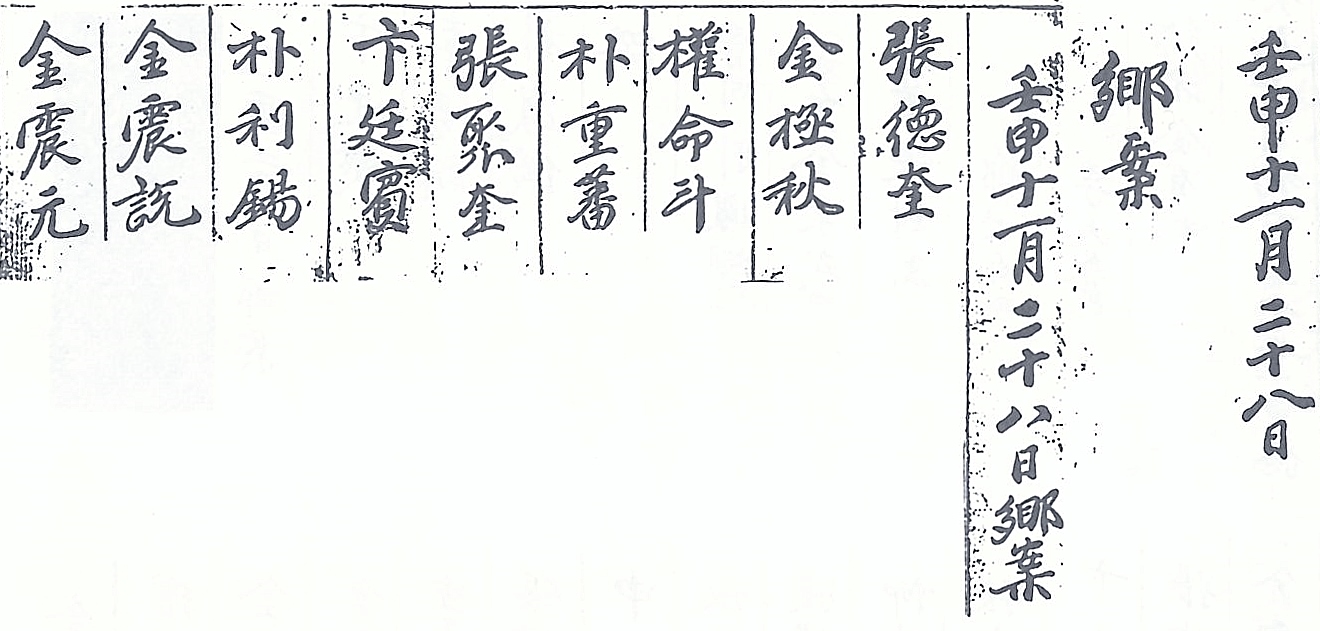 壬申十一月二十八日
鄉案
壬申十一月二十八日鄉案
張德奎
金極秋
權命斗
朴重蕃
張聚奎
卞廷賓
朴利錫
金震說
金震元